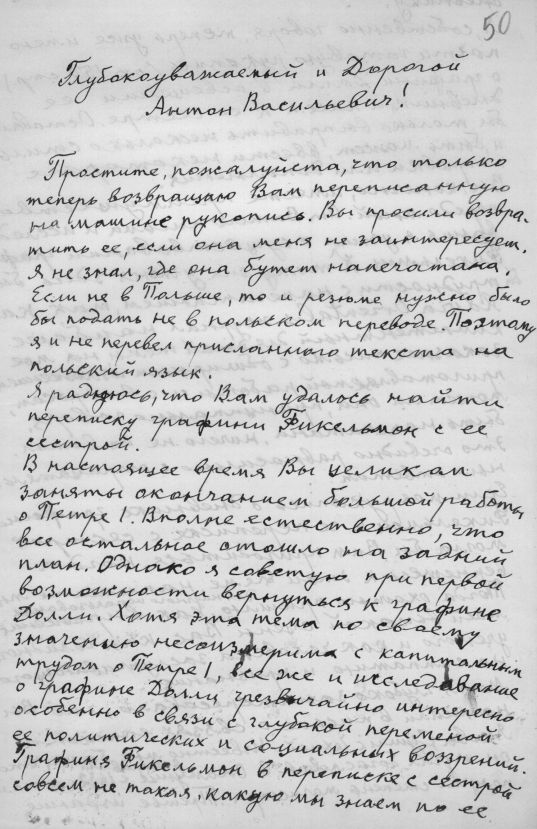 50
Глубокоуважаемый и Дорогой
Антон Васильевич!
Простите, пожалуйста, что только
теперь возвращаю Вам переписанную
на машине рукопись. Вы просили возвра-
тить ее, если она меня не заинтересует.
Я не знал, где она бутет напечатана.
Если не в Польше, то и резюме нужно было
бы подать не в польском переводе. Поэтому
я и не перевел присланного текста на
польский язык.
Я радуюсь, что Вам удалось найти
переписку графини Фикельмон с ее
сестрой.
В настоящее время Вы целикам
заняты окончанием большой работы
о Петре I. Вполне естественно, что
все остальное отошло на задний
план. Однако я советую при первой
возможности вернуться к графине
Долли. Хотя эта тема по своему
значению несоизмерима с капитальным
трудом о Петре I, все же и исследование
о графине Долли чрезвычайно интересно
особенно в связи с глубокой переменой
ее политических и социальных воззрений.
Графиня Фикельмон в переписке с сестрой
совсем не такая, какую мы знаем по ее